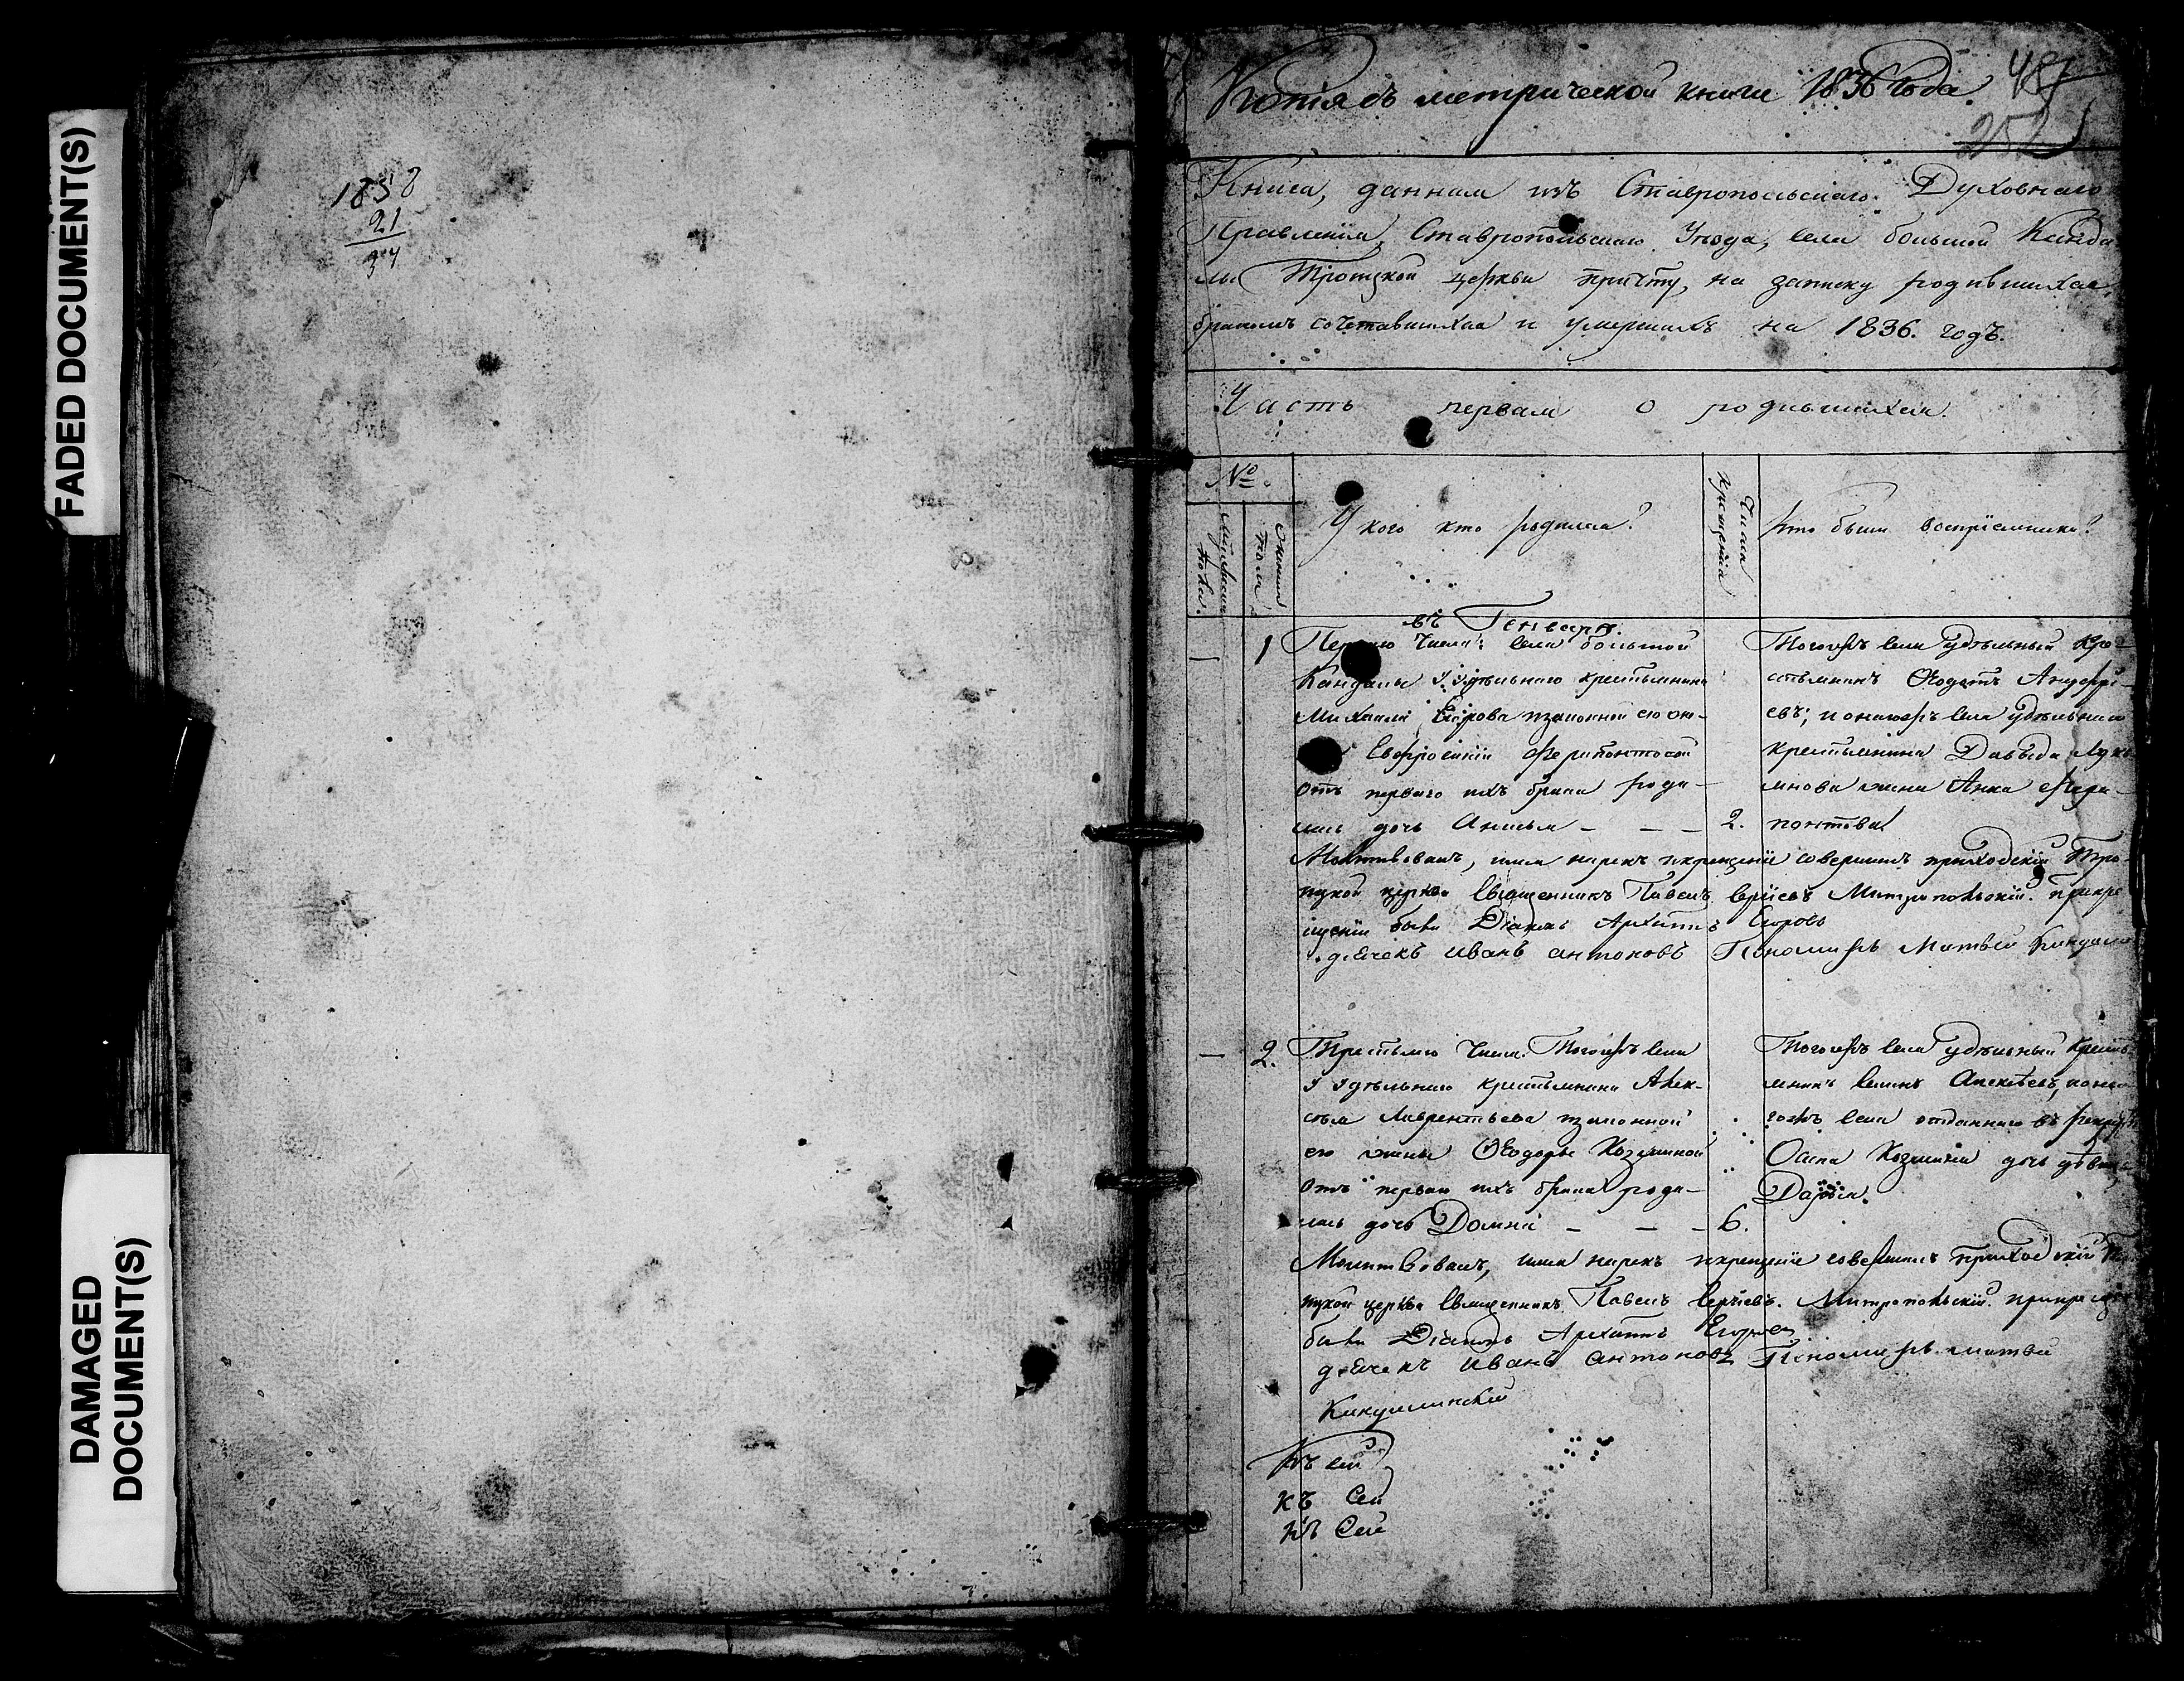 FADED DOCUMENT(S)
DAMAGED
DOCUMENT(S)
1858
21
37
Копія съ метрической книги 1836 года.
252
Книга, данная изъ Ставропольскаго Духовнаго
Правленія, Ставропольскаго Уѣзда, села большой Канда
лы Троицкой церкви причту, на записку родившихся,
бракомъ сочетавшихся и умершихъ на 1836. годъ.
Часть первая о родившихся.
№
Мужеска
пола.
Женска
пола.
У кого кто родился?
Числа
крещенія
Кто были воспріемники?
въ Генварѣ.
1 Перваго числа: села большой
Кандалы удѣльнаго крестьянина
Михаила Егорова и законной его же-
Евфросиніи Ферапонтовой
отъ перваго ихъ брака роди-
лась дочь Анисья — — — 2.
Тогожъ села удѣльный кре-
стьянинъ Ѳедотъ
евъ; и тогожъ села удѣльнаго
крестьянина Давыда
жена Анна Фера-
понтова.
Молитвовалъ, имя нарекъ и крещеніе совершилъ приходскій Тро-
ицкой церкви священникъ Павелъ Сергіевъ Митропольскій. При кре
щеніи были Діаконъ Архиппъ Егоровъ
дьячекъ Иванъ антоновъ Пономарь Матвей
— 2. Третьяго числа. Тогожъ села
удѣльнаго крестьянина Алек-
сѣя Лаврентьева и законной
его жены Ѳедоры Козминой
отъ перваго ихъ брака роди-
лась дочь Домна — — — 6.
Тогожъ села удѣльный кресть-
янинъ Алексѣевъ, и то
гожъ села отданнаго въ рекруты
Осипа Козмина дочь дѣвица
Дарья.
Молитвовалъ, имя нарекъ и крещеніе совершилъ приходскій Тро
ицкой церкви священникъ Павелъ Сергіевъ Митропольскій. при крещеніи
были Діаконъ Архиппъ Егоровъ
дьячекъ Иванъ антоновъ Пономарь матвей
Къ сей
къ Сей
къ Сей